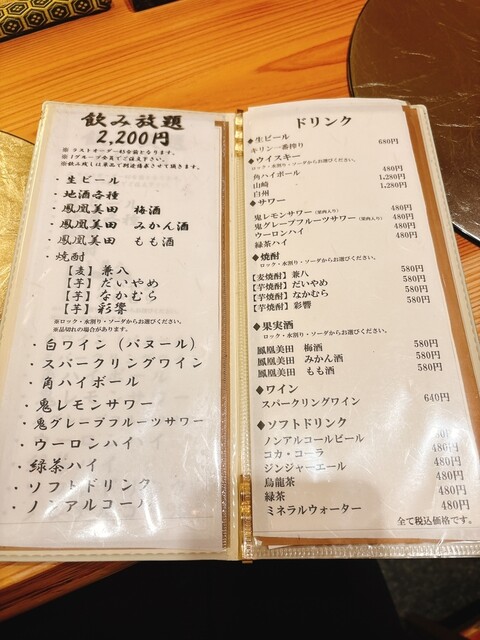 飲み放題
2,200円
※ラストオーダー45分前となります。
※1グループ全員でご注文下さい。
※飲み残しは単品で別途請求させて頂きます。
・生ビール
・地酒各種
・鳳凰美田 梅酒
・鳳凰美田 みかん酒
・鳳凰美田 もも酒
・焼酎
【麦】兼八
【芋】だいやめ
【芋】なかむら
【芋】彩響
※ロック・水割り・ソーダからお選びください。
※品切れの場合があります。
・白ワイン(バヌール)
・スパークリングワイン
・角ハイボール
・鬼レモンサワー
・鬼グレープフルーツサワー
・ウーロンハイ
・緑茶ハイ
・ソフトドリンク
・ノンアルコール
ドリンク
◆生ビール
キリン一番搾り 680円
◆ウイスキー
ロック・水割り・ソーダからお選びください。
角ハイボール 480円
山崎 1,280円
白州 1,280円
◆サワー
鬼レモンサワー(果肉入り) 480円
鬼グレープフルーツサワー(果肉入り) 480円
ウーロンハイ 480円
緑茶ハイ 480円
◆焼酎
ロック・水割り・ソーダからお選びください。
【麦焼酎】兼八 580円
【芋焼酎】だいやめ 580円
【芋焼酎】なかむら 580円
【芋焼酎】彩響 580円
◆果実酒
ロック・水割り・ソーダからお選びください。
鳳凰美田 梅酒 580円
鳳凰美田 みかん酒 580円
鳳凰美田 もも酒 580円
◆ワイン
スパークリングワイン 640円
◆ソフトドリンク
ノンアルコールビール
コカ・コーラ 480円
ジンジャーエール 480円
烏龍茶 480円
緑茶 480円
ミネラルウォーター 480円
全て税込価格です。